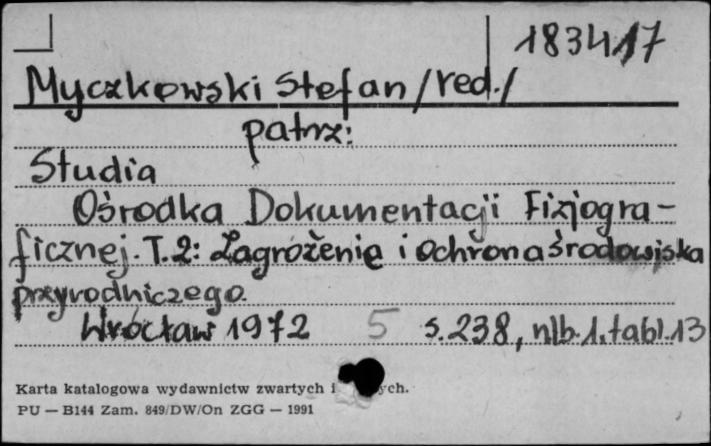 183417
Myczkowski Stefan /red./
patrz:
Studia
Ośrodka Dokumentacji Fizjogra-
ficznej. T.2: Zagrożenie i ochrona środowiska
przyrodniczego.
Wrocław 1972 5 s. 238, nlb. 1, tabl. 13
Karta katalogowa wydawnictw zwartych i ych.
PU — B144 Zam. 849/DW/On ZGG — 1991